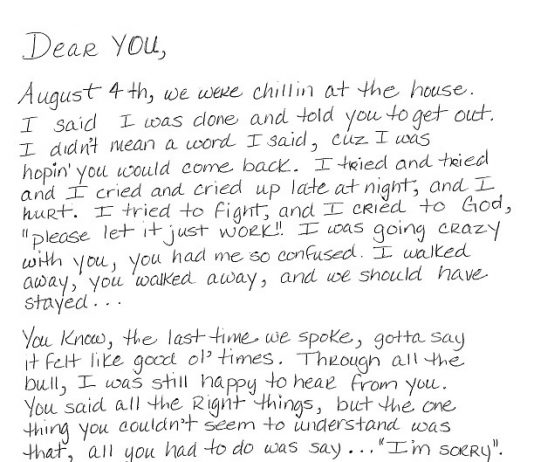 Dear YOU,
August 4th, we were chillin at the house.
I said I was done and told you to get out.
I didn't mean a word I said, cuz I was
hopin' you would come back. I tried and tried
and I cried and cried up late at night, and I
hurt. I tried to fight, and I cried to God,
"please let it just work!" I was going crazy
with you, you had me so confused. I walked
away, you walked away, and we should have
stayed...
You know, the last time we spoke, gotta say
it felt like good ol' times. Through all the
bull, I was still happy to hear from you.
You said all the Right things, but the one
thing you couldn't seem to understand was
that, all you had to do was say..."I'm sorry".